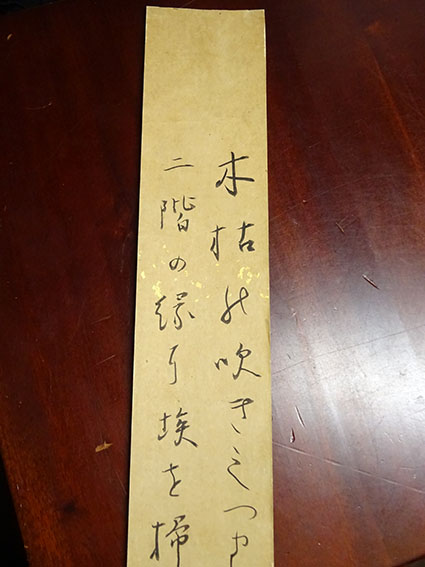 木枯の吹き
二階の縁に埃を掃